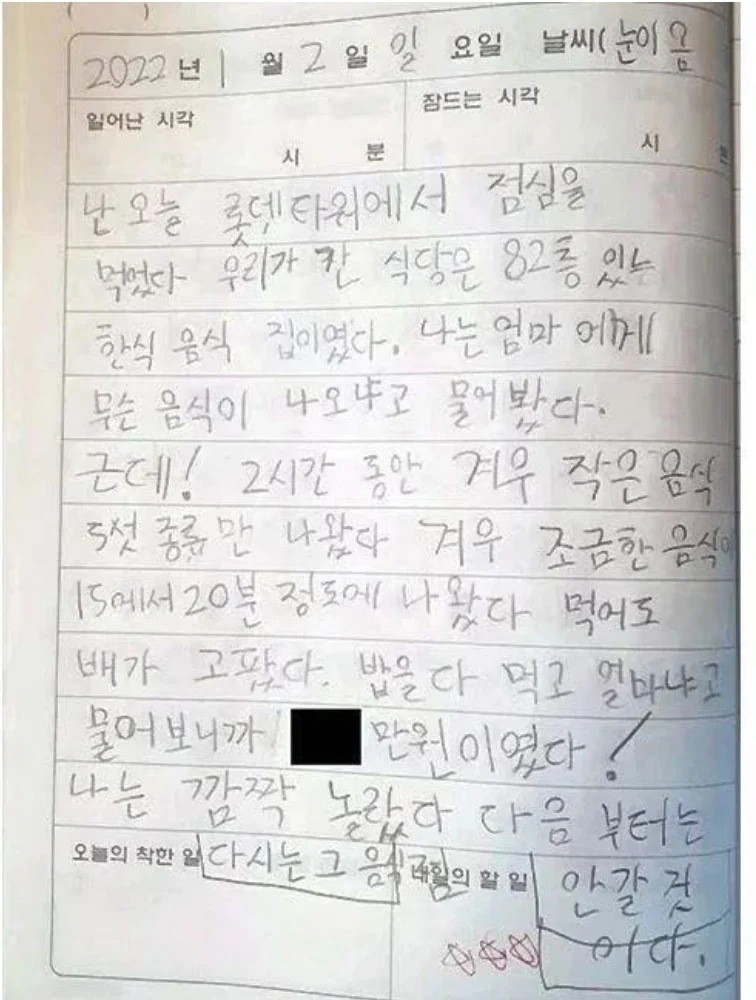 ( )
2022년 1월 2일 일요일 날씨( 눈이 옴
일어난 시각 시 분
잠드는 시각 시
난 오늘 롯뎃타워에서 점심을
먹었다 우리가 간 식당은 82층 있는
한식 음식 집이였다. 나는 엄마 에게
무슨 음식이 나오냐고 물어봤다.
근데! 2시간 동안 겨우 작은 음식
5섯 종류만 나왔다 겨우 조금한 음식이
15에서 20분 정도에 나왔다 먹어도
배가 고팠다. 밥을 다 먹고 얼마냐고
물어보니까 만원이였다!
나는 깜짝 놀랐다 다음 부터는
오늘의 착한 일 다시는 그 음식
내일의 할 일 안 갈 것
이다.